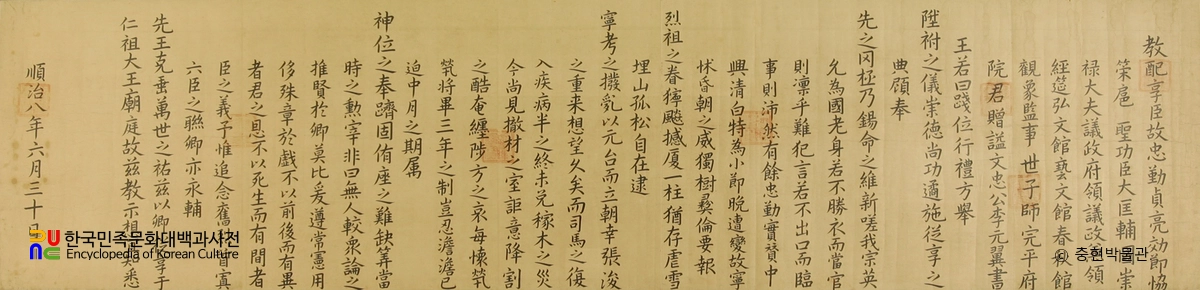 教配享臣故忠勤貞亮効節協
策扈聖功臣大匡輔國崇
祿大夫議政府領議政兼領
經筵弘文館藝文館春秋館
觀象監事 世子師完平府
院君贈謚文忠公李元翼書
王若曰踐位行禮方舉
陞祔之儀崇德尚功遹施從享之
典顧奉
先之罔極乃錫命之維新嗟我宗英
允為國老身若不勝衣而當官
則凜乎難犯言若不出口而臨
事則沛然有餘忠勤實賛中
興清白特為小節晚遭變故寧
怵昏朝之威獨樹彛倫要報
烈祖之眷獰飈撼厦一柱猶存虐雪
埋山孤松自在逮
寧考之撥亂以元台而立朝幸張浚
之重来想望久矣而司馬之復
入疾病半之終未兌稼木之災
今尚見撤材之室詎意降割
之酷奄纏陟方之哀每懷煢
煢將畢三年之制豈忍澹澹已
迫中月之期屬
神位之奉躋固侑座之難缺筭當
時之勲宰非曰無人較衆論之
推賢於卿莫比爰遵常憲用
侈殊章於戲不以前後而有異
者君之恩不以死生而有間者
臣之義予惟追念舊
六臣之聮卿亦永輔
先王克垂萬世之祐兹以卿享于
仁祖大王廟庭故兹敎示想知悉
順治八年六月三十日
한국민족문화대백과사전
Encyclopedia of Korean Culture
© 충현박물관